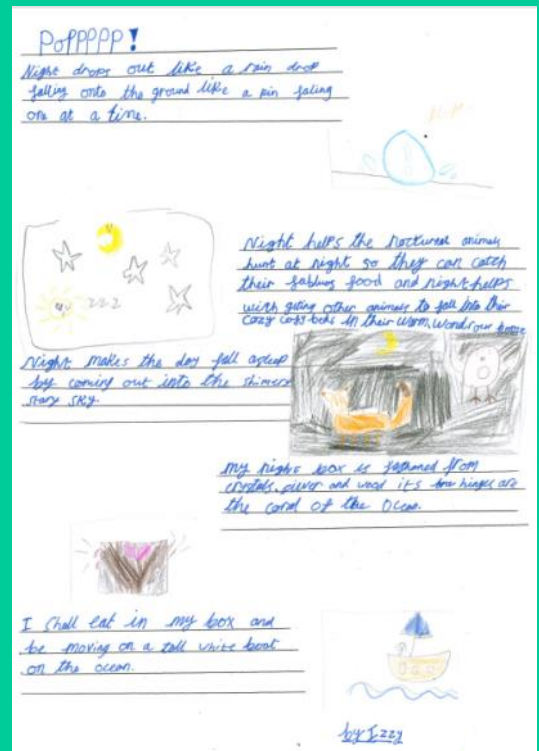 PoPPPPP!
Night drops out like a rain drop
falling onto the ground like a pin faling
one at a time.
Night helps the nocturnal animals
hunt at night so they can catch
their fablus food and night helps
with geting other animals to fall into their
cozy cosy beds in their warm, wondrour
zzz
Night makes the day fall asleep
by coming out into the shimery
stary sky.
my night box is fashoned from
crystals, silver and wood it's hinges are
the coral of the Ocean.
I Shall eat in my box and
be moving on a tall white boat
on the ocean.
by Izzy